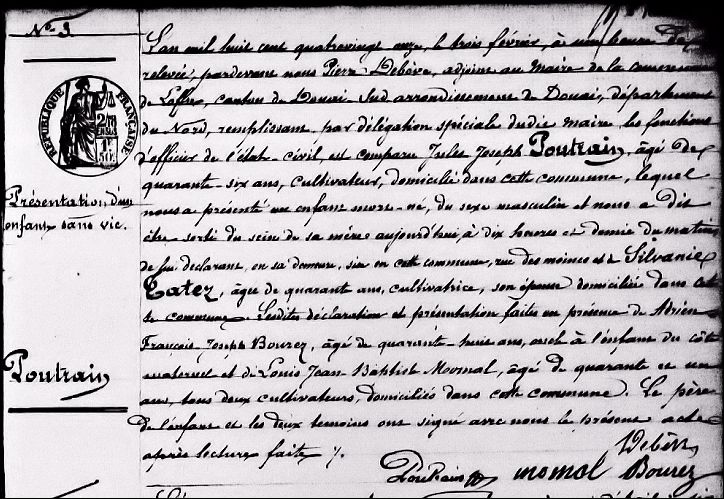 N° 3
L'an mil huit cent quatrevingt onze, le trois février, à une heure de
relevée, pardevant nous Pierre Debève, adjoint au Maire de la commune
de Loffre, canton de Douai Sud, arrondissement de Douai, département
du Nord, remplissant par délégation spéciale dudit Maire les fonctions
d'officier de l'état-civil, est comparu Jules Joseph Poutrain, âgé de
quarante-six ans, cultivateur, domicilié dans cette commune, lequel
nous a présenté un enfant mort-né, du sexe masculin et nous a dit
être sorti du sein de sa mère aujourd'hui, à dix heures et demie du matin
de lui déclarant, en sa demeure, sise en cette commune, rue des moines et de Silvanie
Catez, âgée de quarante ans, cultivatrice, son épouse domiciliée dans cet
te commune. Lesdites déclaration et présentation faites en présence de Adrien
François Joseph Bourez, âgé de quarante-huit ans, oncle à l'enfant du côté
maternel et de Louis Jean-Baptiste Momal, âgé de quarante et un
ans, tous deux cultivateurs, domiciliés dans cette commune. Le père
de l'enfant et les deux témoins ont signé avec nous le présent acte
après lecture faite ./.
Poutrain momal Bourez
Debève
RÉPUBLIQUE FRANÇAISE
Présentation d'un
enfant sans vie.
Poutrain